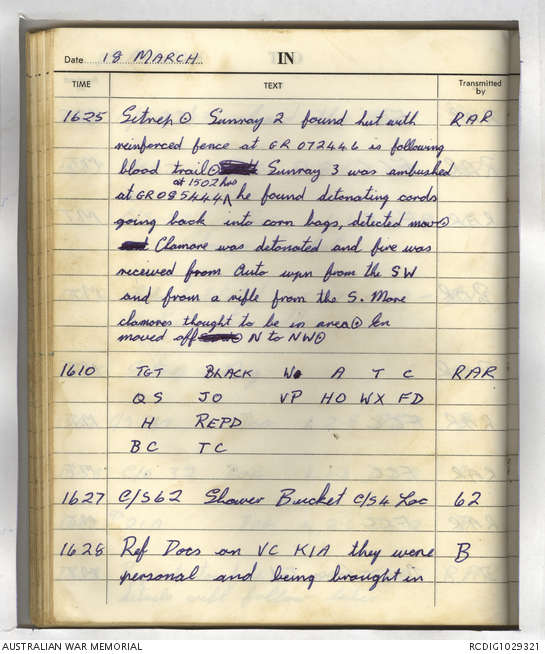 Date 18 MARCH IN
TIME TEXT Transmitted by
1625 Sitrep ⊙ Sunray 2 found hut with RAR
reinforced fence at GR 072446 is following
blood trail ⊙ Sunray 3 was ambushed
at 1502 hrs
at GR 085444 ∧ he found detonating cords
going back into corn bags, detected mov ⊙
Clamore was detonated and fire was
received from Auto wpn from the SW
and from a rifle from the S. More
clamores thought to be in area ⊙ En
moved off ⊙ N to NW ⊙
1610 TGT BLACK W A T C RAR
QS JO VP HO WX FD
H REPD
BC TC
1627 C/S 62 Shower Bucket C/S 4 Loc 62
1628 Ref Docs on VC KIA they were B
personal and being brought in
AUSTRALIAN WAR MEMORIAL RCDIG1029321